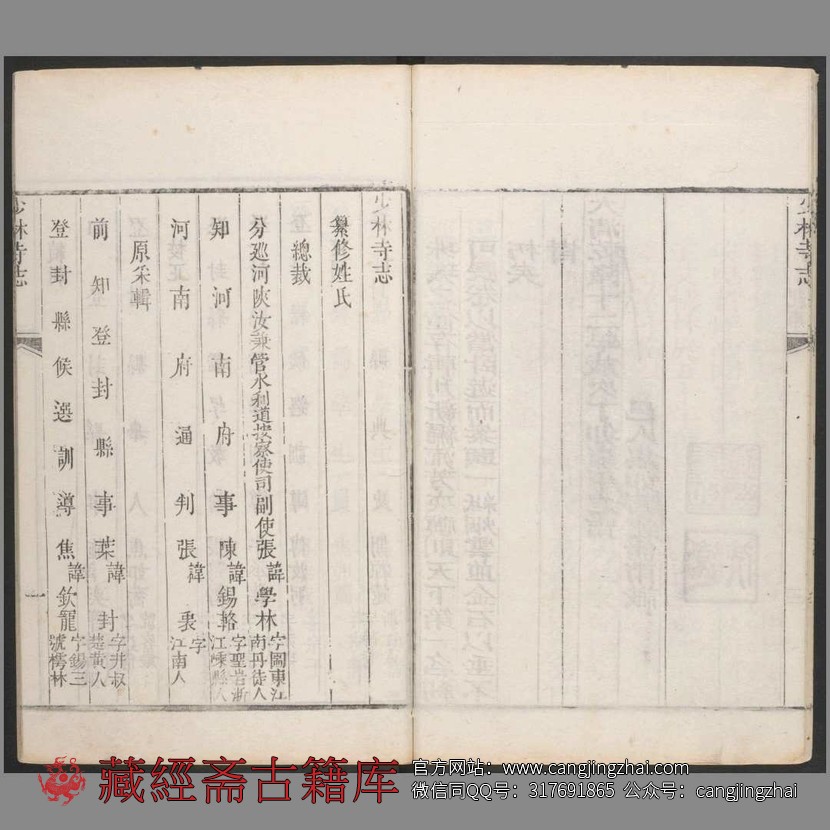 少林寺志
少林寺志
纂修姓氏
總裁
分巡河陝汝兼管水利道按察使司副使張諱學林字圖東江南丹徒人
知河南府事陳諱錫輅字聖岩浙江
河南府通判張諱裠字江南人
原采輯
前知登封縣事葉諱封字井叔楚黃人
登封縣候選訓導焦諱欽寵字錫三號樗林
一
少林寺志
藏經斋古籍库
官方网站：www.cangjingzhai.com
微信同QQ号：317691865 公众号：cangjingzhai